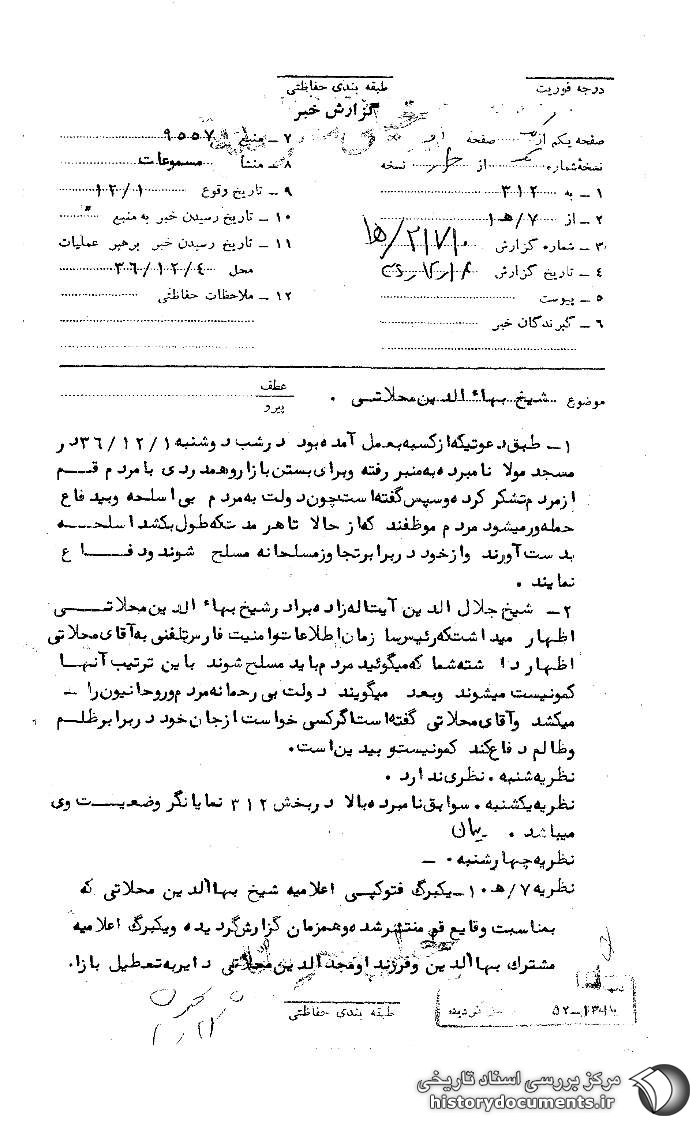 درجه فوریت
طبقه بندی حفاظتی
گزارش خبر
صفحه یکم از صفحه
نسخه شماره از نسخه
۱ ـ به ۳۱۲
۲ ـ از ۷/هـ۱
۳ ـ شماره گزارش
۴ ـ تاریخ گزارش
۵ ـ پیوست
۶ ـ گیرندگان خبر
۷ ـ منبع ۹۵۵۷
۸ ـ منشأ مسموعات
۹ ـ تاریخ وقوع ۱۲/۱
۱۰ ـ تاریخ رسیدن خبر به منبع
۱۱ ـ تاریخ رسیدن خبر برهبر عملیات
محل ۳۶/۱۲/۴
۱۲ ـ ملاحظات حفاظتی
موضوع شیخ بهاء الدین محلاتی . عطف
پیرو
۱ـ طبق دعوتیکه از کسبه بعمل آمده بود در شب دوشنبه ۳۶/۱۲/۱ در
مسجد مولا نامبرده به منبر رفته و برای بستن بازار و همدردی با مردم قم
از مردم تشکر کرده و سپس گفته است چون دولت به مردم بی اسلحه و بیدفاع
حمله ور میشود مردم موظفند که از حالا تا هر مدتکه طول بکشد اسلحه
بدست آورند و از خود در برابر تجاوز مسلحانه مسلح شوند و دفاع
نمایند .
۲ـ شیخ جلال الدین آیت اله زاده برادر شیخ بهاء الدین محلاتی
اظهار میداشت که رئیس سازمان اطلاعات و امنیت فارس تلفنی به آقای محلاتی
اظهار داشته شما که میگوئید مردم باید مسلح شوند باین ترتیب آنها
کمونیست میشوند و بعد میگویند دولت بی رحمانه مردم و روحانیون را ـ
میکشد و آقای محلاتی گفته است اگر کسی خواست از جان خود در برابر ظلم
و ظالم دفاع کند کمونیست و بیدین است.
نظریه شنبه . نظری ندارد .
نظریه یکشنبه . سوابق نامبرده بالا در بخش ۳۱۲ نمایانگر وضعیت وی
میباشد .
نظریه چهارشنبه . ـ
نظریه ۷/هـ۱۰ ـ یکبرگ فتوکپی اعلامیه شیخ بهاالدین محلاتی که
بمناسبت وقایع قم منتشر شده و همزمان گزارش گردیده و یکبرگ اعلامیه
مشترک بهاالدین و فرزند او مجد الدین محلاتی دایر به تعطیل بازا.
طبقه بندی حفاظتی
گردیده
مرکز بررسی اسناد تاریخی
historydocuments.ir